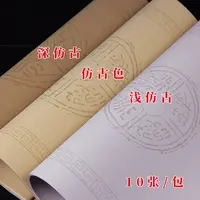 深仿古
仿古色
浅仿古
10张/包